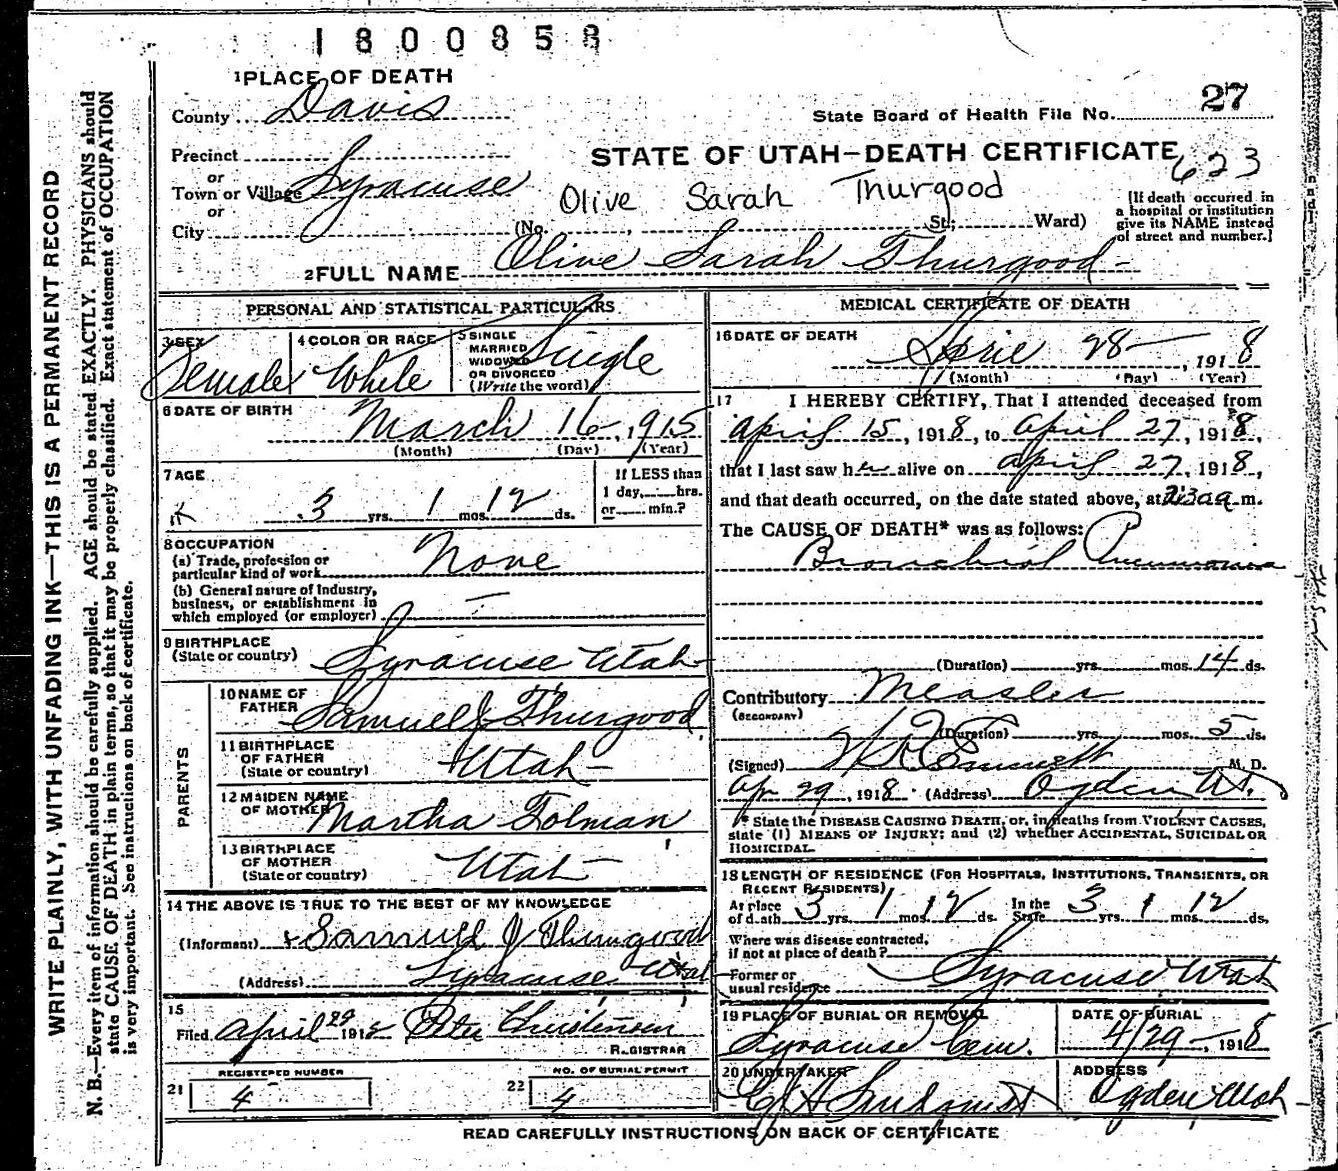 1800858
1 PLACE OF DEATH
County Davis
State Board of Health File No. 27
Precinct
or
Town or Village Syracuse
or
City
STATE OF UTAH—DEATH CERTIFICATE
623
Olive Sarah Thurgood
(No. , St; Ward)
[If death occurred in
a hospital or institution
give its NAME instead
of street and number.]
2 FULL NAME Olive Sarah Thurgood
PERSONAL AND STATISTICAL PARTICULARS
3 SEX
Female
4 COLOR OR RACE
White
5 SINGLE
MARRIED
WIDOWED
OR DIVORCED
(Write the word)
Single
6 DATE OF BIRTH
March 16, 1915
(Month) (Day) (Year)
7 AGE
3 yrs. 1 mos. 12 ds.
If LESS than
1 day, hrs.
or min.?
8 OCCUPATION
(a) Trade, profession or
particular kind of work
None
(b) General nature of Industry,
business, or establishment in
which employed (or employer)
9 BIRTHPLACE
(State or country) Syracuse Utah
PARENTS
10 NAME OF
FATHER
Samuel J Thurgood
11 BIRTHPLACE
OF FATHER
(State or country)
Utah
12 MAIDEN NAME
OF MOTHER
Martha Tolman
13 BIRTHPLACE
OF MOTHER
(State or country)
Utah
14 THE ABOVE IS TRUE TO THE BEST OF MY KNOWLEDGE
(Informant) Samuel J Thurgood
(Address) Syracuse Utah
15
Filed April 29 1918 Peter Christensen
REGISTRAR
21
REGISTERED NUMBER
4
22
NO. OF BURIAL PERMIT
4
MEDICAL CERTIFICATE OF DEATH
16 DATE OF DEATH
April 28, 1918
(Month) (Day) (Year)
17 I HEREBY CERTIFY, That I attended deceased from
April 15, 1918, to April 27, 1918,
that I last saw her alive on April 27, 1918,
and that death occurred, on the date stated above, at m.
The CAUSE OF DEATH* was as follows:
Bronchial Pneumonia
(Duration) yrs. mos. 14 ds.
Contributory Measles
(SECONDARY)
(Duration) yrs. mos. 5 ds.
(Signed) M. D.
Apr 29, 1918 (Address) Ogden Ut.
* State the DISEASE CAUSING DEATH, or, in deaths from VIOLENT CAUSES,
state (1) MEANS OF INJURY; and (2) whether ACCIDENTAL, SUICIDAL OR
HOMICIDAL.
18 LENGTH OF RESIDENCE (FOR HOSPITALS, INSTITUTIONS, TRANSIENTS, OR
RECENT RESIDENTS)
At place
of death 3 yrs. 1 mos. 12 ds. In the
State 3 yrs. 1 12 ds.
Where was disease contracted,
if not at place of death?
Former or
usual residence Syracuse, Utah
19 PLACE OF BURIAL OR REMOVAL
Syracuse Cem.
DATE OF BURIAL
4/29, 1918
20 UNDERTAKER
ADDRESS
Ogden Utah
READ CAREFULLY INSTRUCTIONS ON BACK OF CERTIFICATE
WRITE PLAINLY, WITH UNFADING INK—THIS IS A PERMANENT RECORD
N. B.—Every item of information should be carefully supplied. AGE should be stated EXACTLY. PHYSICIANS should
state CAUSE OF DEATH in plain terms, so that it may be properly classified. Exact statement of OCCUPATION
is very important. See instructions on back of certificate.